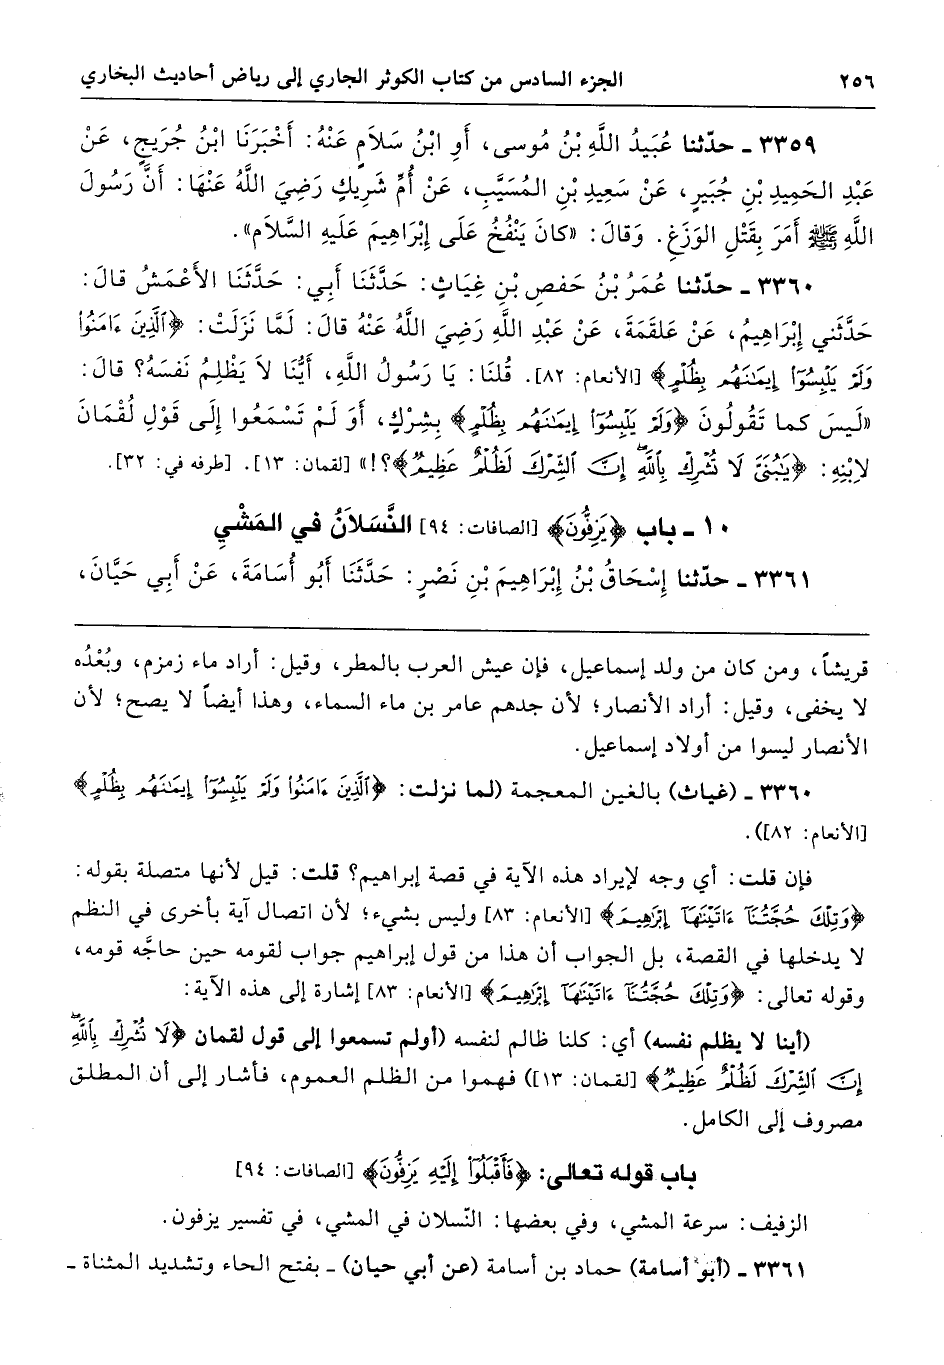 ٢٥٦ الجزء السادس من كتاب الكوثر الجاري إلى رياض أحاديث البخاري
٣٣٥٩ ـ حدّثنا عُبَيدُ اللَّهِ بْنُ مُوسى، أَوِ ابْنُ سَلاَمٍ عَنْهُ: أَخْبَرَنَا ابْنُ جُرَيجٍ، عَنْ
عَبْدِ الحَمِيدِ بْنِ جُبَيرٍ، عَنْ سَعِيدِ بْنِ المُسَيَّبِ، عَنْ أُمِّ شَرِيكٍ رَضِيَ اللَّهُ عَنْهَا: أَنَّ رَسُولَ
اللَّهِ ﷺ أَمَرَ بِقَتْلِ الوَزَغِ. وَقَالَ: «كانَ يَنْفُخُ عَلَى إِبْرَاهِيمَ عَلَيهِ السَّلاَم».
٣٣٦٠ ـ حدّثنا عُمَرُ بْنُ حَفصِ بْنِ غِيَاثٍ: حَدَّثَنَا أَبِي: حَدَّثَنَا الأَعْمَشُ قالَ:
حَدَّثَنِي إِبْرَاهِيمُ، عَنْ عَلقَمَةَ، عَنْ عَبْدِ اللَّهِ رَضِيَ اللَّهُ عَنْهُ قالَ: لَمَّا نَزَلَتْ: ﴿ٱلَّذِينَ ءَامَنُوا۟
وَلَمْ يَلْبِسُوٓا۟ إِيمَـٰنَهُم بِظُلْمٍ﴾ [الأنعام: ٨٢]. قُلنَا: يَا رَسُولُ اللَّهِ، أَيُّنَا لاَ يَظْلِمُ نَفسَهُ؟ قالَ:
«لَيسَ كما تَقُولُونَ ﴿وَلَمْ يَلْبِسُوٓا۟ إِيمَـٰنَهُم بِظُلْمٍ﴾ بِشِرْكٍ، أَوَ لَمْ تَسْمَعُوا إِلَى قَوْلِ لُقْمَانَ
لاِبْنِهِ: ﴿يَـٰبُنَىَّ لَا تُشْرِكْ بِٱللَّهِ ۖ إِنَّ ٱلشِّرْكَ لَظُلْمٌ عَظِيمٌ﴾؟!» [لقمان: ١٣]. [طرفه في: ٣٢].
١٠ ـ باب ﴿يَزِفُّونَ﴾ [الصافات: ٩٤] النَّسَلاَنُ في المَشْيِ
٣٣٦١ ـ حدّثنا إِسْحَاقُ بْنُ إِبْرَاهِيمَ بْنِ نَصْرٍ: حَدَّثَنَا أَبُو أُسَامَةَ، عَنْ أَبِي حَيَّانَ،
قريشاً، ومن كان من ولد إسماعيل، فإن عيش العرب بالمطر، وقيل: أراد ماء زمزم، وبُعْدُه
لا يخفى، وقيل: أراد الأنصار؛ لأن جدهم عامر بن ماء السماء، وهذا أيضاً لا يصح؛ لأن
الأنصار ليسوا من أولاد إسماعيل.
٣٣٦٠ ـ (غياث) بالغين المعجمة (لما نزلت: ﴿ٱلَّذِينَ ءَامَنُوا۟ وَلَمْ يَلْبِسُوٓا۟ إِيمَـٰنَهُم بِظُلْمٍ﴾
[الأنعام: ٨٢]).
فإن قلت: أي وجه لإيراد هذه الآية في قصة إبراهيم؟ قلت: قيل لأنها متصلة بقوله:
﴿وَتِلْكَ حُجَّتُنَآ ءَاتَيْنَـٰهَآ إِبْرَٰهِيمَ﴾ [الأنعام: ٨٣] وليس بشيء؛ لأن اتصال آية بأخرى في النظم
لا يدخلها في القصة، بل الجواب أن هذا من قول إبراهيم جواب لقومه حين حاجَّه قومه،
وقوله تعالى: ﴿وَتِلْكَ حُجَّتُنَآ ءَاتَيْنَـٰهَآ إِبْرَٰهِيمَ﴾ [الأنعام: ٨٣] إشارة إلى هذه الآية:
(أينا لا يظلم نفسه) أي: كلنا ظالم لنفسه (أولم تسمعوا إلى قول لقمان ﴿لَا تُشْرِكْ بِٱللَّهِ ۖ
إِنَّ ٱلشِّرْكَ لَظُلْمٌ عَظِيمٌ﴾ [لقمان: ١٣]) فهموا من الظلم العموم، فأشار إلى أن المطلق
مصروف إلى الكامل.
باب قوله تعالى: ﴿فَأَقْبَلُوٓا۟ إِلَيْهِ يَزِفُّونَ﴾ [الصافات: ٩٤]
الزفيف: سرعة المشي، وفي بعضها: النّسلان في المشي، في تفسير يزفون.
٣٣٦١ ـ (أبو أسامة) حماد بن أسامة (عن أبي حيان) ـ بفتح الحاء وتشديد المثناة ـ